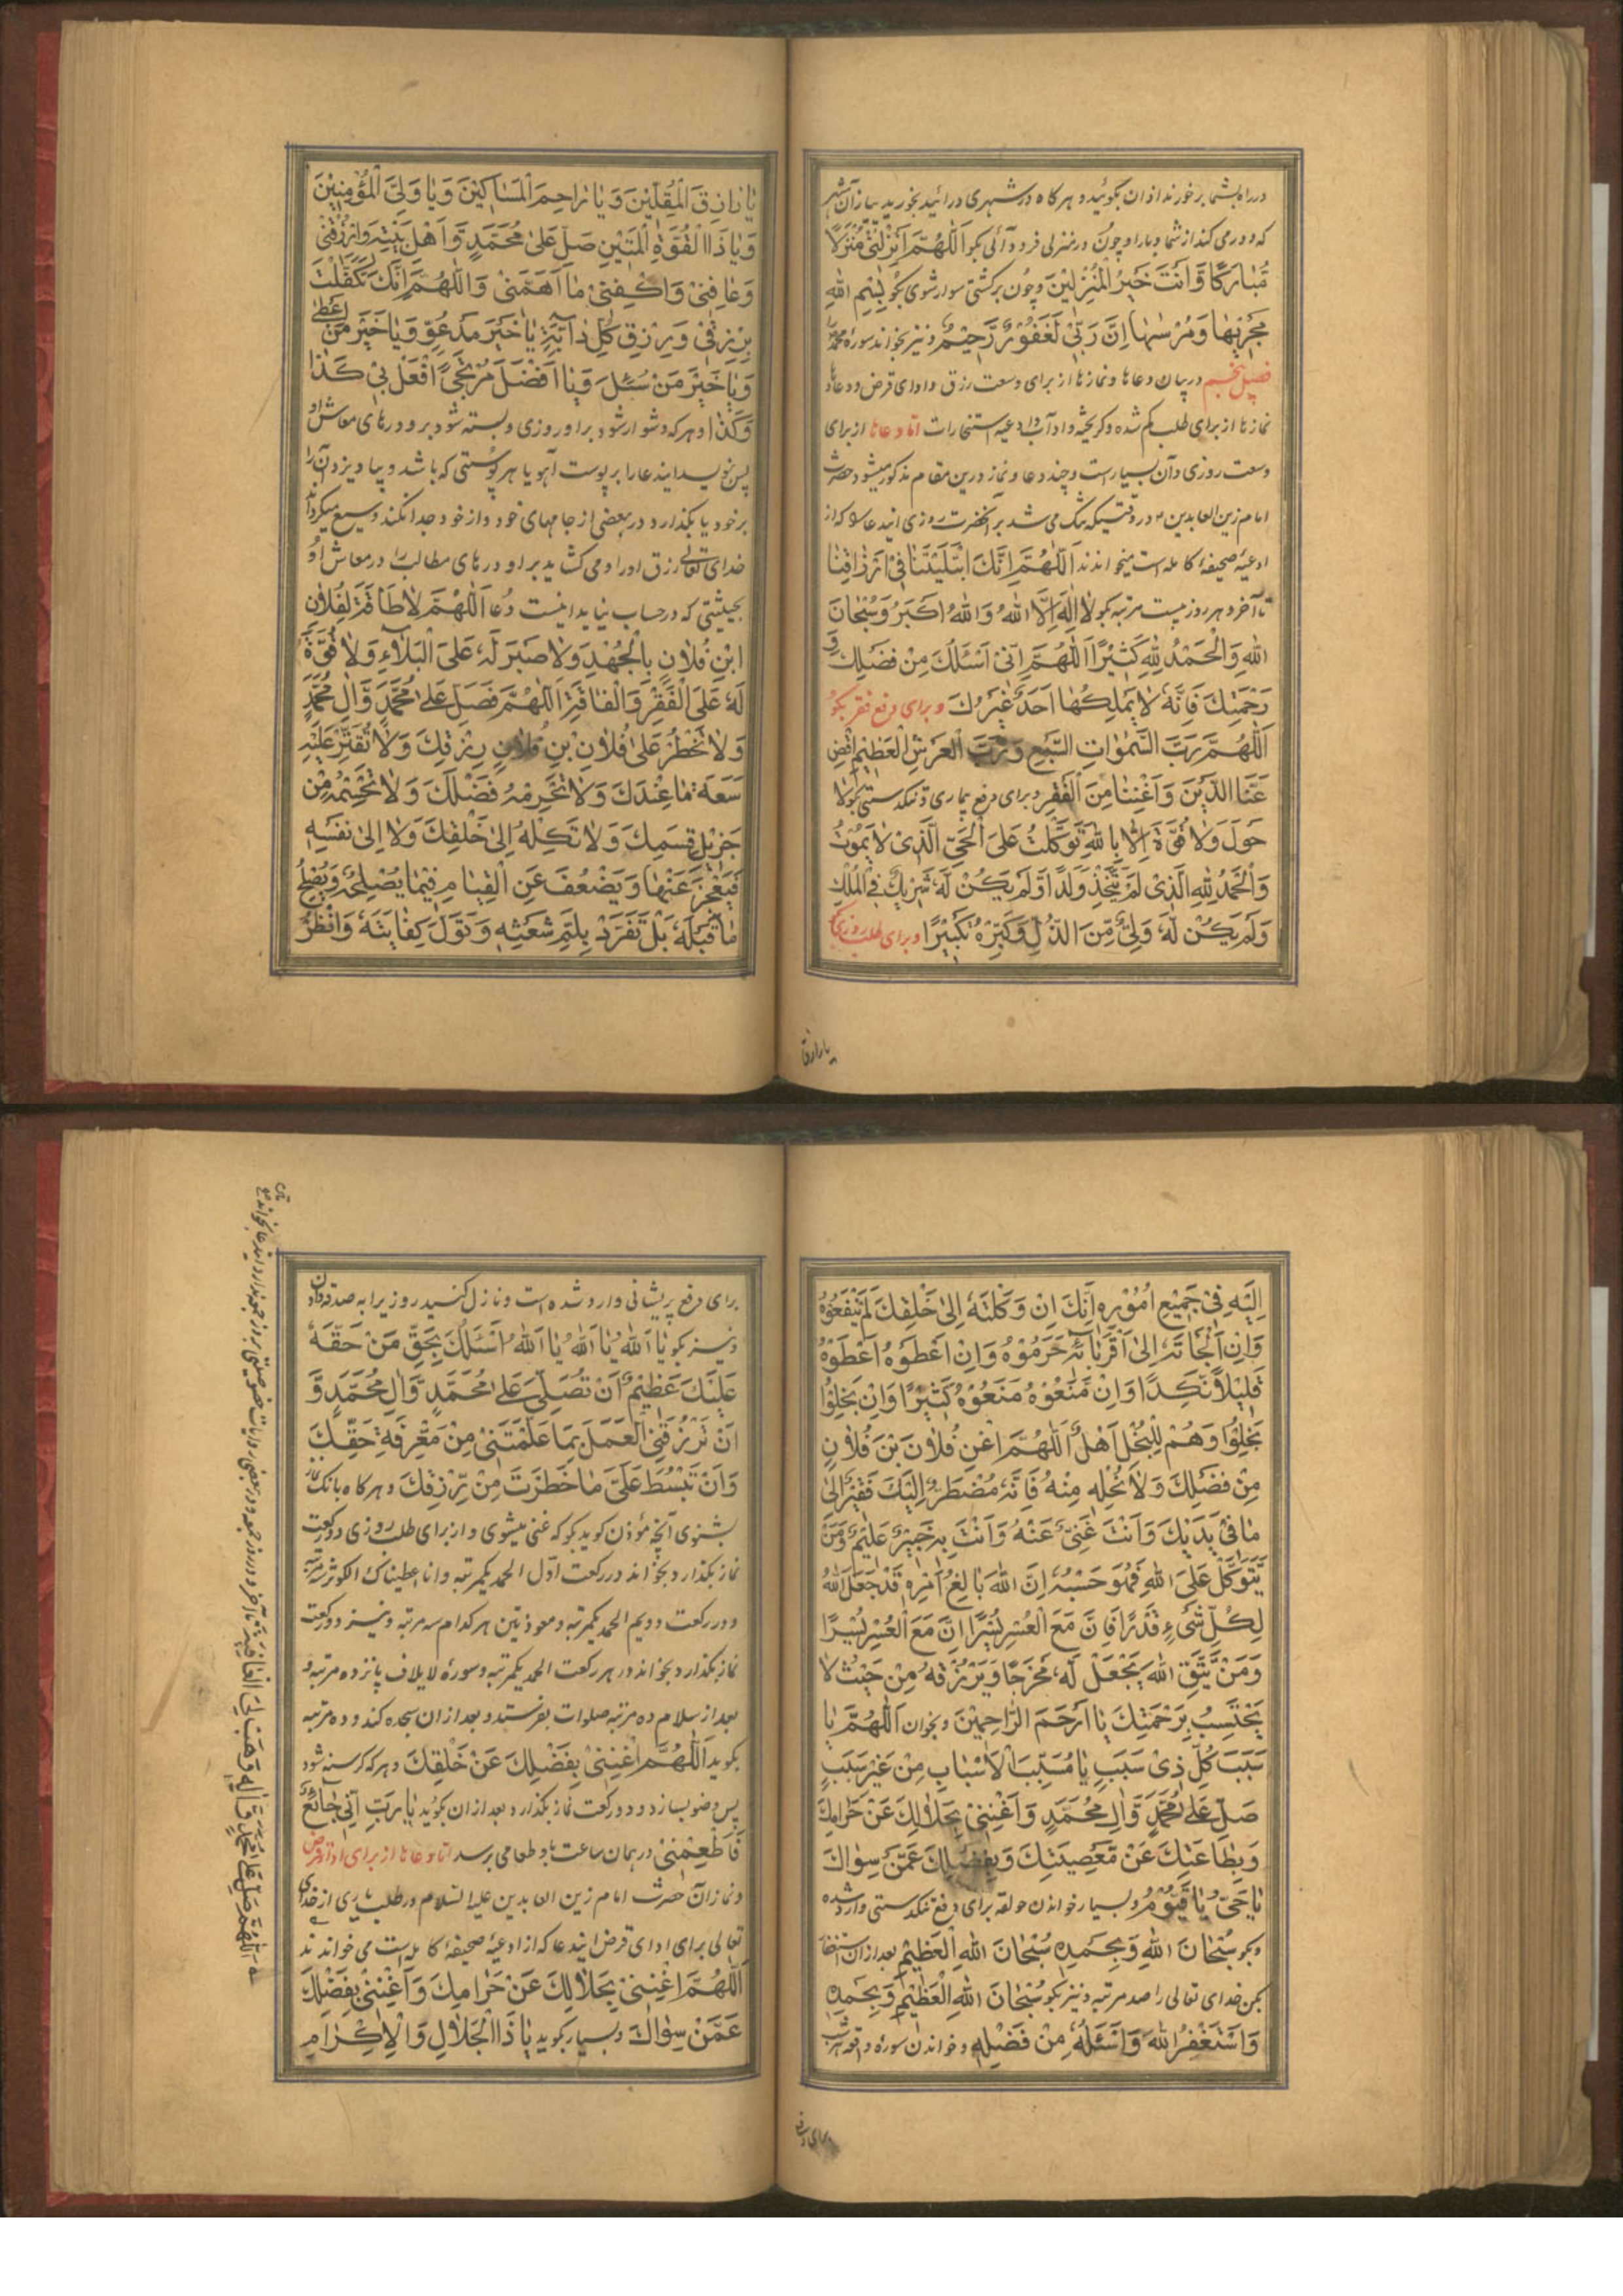 در راه بشما برخورند اذان بگوئید و هر کاه در شهری درائید بخورید پیاز آن شهر
که دور می کند از شما وبا را و چون در منزلی فرود آئی بکو اَللّٰهُمَّ اَنْزِلْنِیْ مُنْزَلًا
مُّبَارَكًا وَّاَنْتَ خَیْرُ الْمُنْزِلِیْنَ و چون بر کشتی سوار شوی بکو بِسْمِ اللهِ
مَجْرٖىهَا وَمُرْسٰىهَا اِنَّ رَبِّیْ لَغَفُوْرٌ رَّحِیْمٌ و نیز بخواند سوره محمد را
فصل پنجم در بیان دعاها و نمازها از برای وسعت رزق و ادای قرض و دعاها و
نمازها از برای طلب کم شده و کریخته و آداب و ادعیه استخارات اما دعاها از برای
وسعت روزی و آن بسیار است و چند دعا و نماز درین مقام مذکور میشود حضرت
امام زین العابدین ع در وقتیکه تنگ می شد بر آنحضرت روزی ایندعا را که از
ادعیهٔ صحیفهٔ کامله است میخواندند اَللّٰهُمَّ اِنَّكَ ابْتَلَیْتَنَا فِیْ اَرْزَاقِنَا
تا آخر و هر روز بیست مرتبه بکو لَا اِلٰهَ اِلَّا اللهُ وَاللهُ اَكْبَرُ وَسُبْحَانَ
اللهِ وَالْحَمْدُ لِلّٰهِ كَثِیْرًا اَللّٰهُمَّ اِنِّیْ اَسْئَلُكَ مِنْ فَضْلِكَ وَ
رَحْمَتِكَ فَاِنَّهٗ لَا یَمْلِكُهَا اَحَدٌ غَیْرُكَ و برای رفع فقر بکو
اَللّٰهُمَّ رَبَّ السَّمٰوٰاتِ السَّبْعِ وَرَبَّ الْعَرْشِ الْعَظِیْمِ اقْضِ
عَنَّا الدَّیْنَ وَاَغْنِنَا مِنَ الْفَقْرِ و برای رفع بیماری و تنکدستی بکو لَا
حَوْلَ وَلَا قُوَّةَ اِلَّا بِاللهِ تَوَكَّلْتُ عَلَى الْحَیِّ الَّذِیْ لَا یَمُوْتُ
وَالْحَمْدُ لِلّٰهِ الَّذِیْ لَمْ یَتَّخِذْ وَلَدًا وَّلَمْ یَكُنْ لَّهٗ شَرِیْكٌ فِی الْمُلْكِ
وَلَمْ یَكُنْ لَّهٗ وَلِیٌّ مِّنَ الذُّلِّ وَكَبِّرْهُ تَكْبِیْرًا و برای طلب روزی بکو
یا رازق ا
یَا رَازِقَ الْمُقِلِّیْنَ وَیَا رَاحِمَ الْمَسَاكِیْنَ وَیَا وَلِیَّ الْمُؤْمِنِیْنَ
وَیَا ذَا الْقُوَّةِ الْمَتِیْنِ صَلِّ عَلٰى مُحَمَّدٍ وَّاَهْلِ بَیْتِهٖ وَارْزُقْنِیْ
وَعَافِنِیْ وَاكْفِنِیْ مَا اَهَمَّنِیْ وَاللّٰهُمَّ اِنَّكَ تَكَفَّلْتَ
بِرِزْقِیْ وَرِزْقِ كُلِّ دَآبَّةٍ یَا خَیْرَ مَدْعُوٍّ وَیَا خَیْرَ مَنْ اَعْطٰى
وَیَا خَیْرَ مَنْ سُئِلَ وَیَا اَفْضَلَ مُرْتَجًى افْعَلْ بِیْ كَذَا
وَكَذَا و هر که دشوار شود بر او روزی و بسته شود بر او درهای معاش او
پس بنویسد ایندعا را بر پوست آهو یا هر پوستی که باشد و بیاویزد آن را
بر خود یا بکذارد در بعضی از جامهای خود و از خود جدا نکند وسیع میکرداند
خدای تعالی رزق او را و می کشاید بر او درهای مطالب را در معاش او
بحیثیتی که در حساب نیاید اینست دعا اَللّٰهُمَّ لَا طَاقَةَ لِفُلَانِ
ابْنِ فُلَانٍ بِالْجُهْدِ وَلَا صَبْرَ لَهٗ عَلَى الْبَلَآءِ وَلَا قُوَّةَ
لَهٗ عَلَى الْفَقْرِ وَالْفَاقَةِ اَللّٰهُمَّ فَصَلِّ عَلٰى مُحَمَّدٍ وَّاٰلِ مُحَمَّدٍ
وَلَا تَحْظُرْ عَلٰى فُلَانِ بْنِ فُلَانٍ رِزْقَكَ وَلَا تُقَتِّرْ عَلَیْهِ
سَعَةَ مَا عِنْدَكَ وَلَا تَحْرِمْهُ فَضْلَكَ وَلَا تَحْسِمْهُ مِنْ
جَزِیْلِ قِسَمِكَ وَلَا تَكِلْهُ اِلٰى خَلْقِكَ وَلَا اِلٰى نَفْسِهٖ
فَیَعْجِزَ عَنْهَا وَیَضْعُفَ عَنِ الْقِیَامِ فِیْمَا یُصْلِحُهٗ وَیُصْلِحُ
مَا قِبَلَهٗ بَلْ تَفَرَّدْ بِلَمِّ شَعَثِهٖ وَتَوَلَّ كِفَایَتَهٗ وَانْظُرْ
اِلَیْهِ فِیْ جَمِیْعِ اُمُوْرِهٖ اِنَّكَ اِنْ وَكَلْتَهٗ اِلٰى خَلْقِكَ لَمْ یَنْفَعُوْهُ
وَاِنْ اَلْجَاْتَهٗ اِلٰى اَقْرِبَائِهٖ حَرَمُوْهُ وَاِنْ اَعْطَوْهُ اَعْطَوْهُ
قَلِیْلًا نَّكِدًا وَاِنْ مَّنَعُوْهُ مَنَعُوْهُ كَثِیْرًا وَاِنْ بَخِلُوْا
بَخِلُوْا وَهُمْ لِلْبُخْلِ اَهْلٌ اَللّٰهُمَّ اَغْنِ فُلَانَ بْنَ فُلَانٍ
مِنْ فَضْلِكَ وَلَا تُخْلِهٖ مِنْهُ فَاِنَّهٗ مُضْطَرٌّ اِلَیْكَ فَقِیْرٌ اِلٰى
مَا فِیْ یَدَیْكَ وَاَنْتَ غَنِیٌّ عَنْهُ وَاَنْتَ بِهٖ خَبِیْرٌ عَلِیْمٌ وَمَنْ
یَّتَوَكَّلْ عَلَى اللهِ فَهُوَ حَسْبُهٗ اِنَّ اللهَ بَالِغُ اَمْرِهٖ قَدْ جَعَلَ اللهُ
لِكُلِّ شَیْءٍ قَدْرًا فَاِنَّ مَعَ الْعُسْرِ یُسْرًا اِنَّ مَعَ الْعُسْرِ یُسْرًا
وَمَنْ یَّتَّقِ اللهَ یَجْعَلْ لَّهٗ مَخْرَجًا وَّیَرْزُقْهُ مِنْ حَیْثُ لَا
یَحْتَسِبُ بِرَحْمَتِكَ یَا اَرْحَمَ الرَّاحِمِیْنَ و بخوان اَللّٰهُمَّ یَا
سَبَبَ كُلِّ ذِیْ سَبَبٍ یَا مُسَبِّبَ الْاَسْبَابِ مِنْ غَیْرِ سَبَبٍ
صَلِّ عَلٰى مُحَمَّدٍ وَّاٰلِ مُحَمَّدٍ وَاَغْنِنِیْ بِحَلَالِكَ عَنْ حَرَامِكَ
وَبِطَاعَتِكَ عَنْ مَّعْصِیَتِكَ وَبِفَضْلِكَ عَمَّنْ سِوَاكَ
یَا حَیُّ یَا قَیُّوْمُ و بسیار خواندن حولقه برای رفع تنکدستی وارد شده
و بکو سُبْحَانَ اللهِ وَبِحَمْدِهٖ سُبْحَانَ اللهِ الْعَظِیْمِ بعد از آن استغفار
بکن خدای تعالی را صد مرتبه و نیز بکو سُبْحَانَ اللهِ الْعَظِیْمِ وَبِحَمْدِهٖ
وَاَسْتَغْفِرُ اللهَ وَاَسْئَلُهٗ مِنْ فَضْلِهٖ و خواندن سورهٔ واقعه هر شب
برای رفع
برای رفع پریشانی وارد شده است و نازل کنید روزی را به صدقه دادن
و نیز بکو یَا اَللهُ یَا اَللهُ یَا اَللهُ اَسْئَلُكَ بِحَقِّ مَنْ حَقُّهٗ
عَلَیْكَ عَظِیْمٌ اَنْ تُصَلِّیَ عَلٰى مُحَمَّدٍ وَّاٰلِ مُحَمَّدٍ وَّ
اَنْ تَرْزُقَنِیَ الْعَمَلَ بِمَا عَلَّمْتَنِیْ مِنْ مَّعْرِفَةِ حَقِّكَ
وَاَنْ تَبْسُطَ عَلَیَّ مَا حَظَرْتَ مِنْ رِّزْقِكَ و هر کاه بانک نماز
بشنوی آنچه مؤذن کوید بکو که غنی میشوی و از برای طلب روزی دو رکعت
نماز بکذارد بخواند در رکعت اول الحمد یکمرتبه و انا اعطیناك الکوثر سه مرتبه
و در رکعت دویم الحمد یکمرتبه و معوذتین هر کدام سه مرتبه و نیز دو رکعت
نماز بکذارد بخواند در هر رکعت الحمد یکمرتبه و سورهٔ لایلاف پانزده مرتبه و
بعد از سلام ده مرتبه صلوات بفرستد و بعد از ان سجده کند و ده مرتبه
بکوید اَللّٰهُمَّ اَغْنِنِیْ بِفَضْلِكَ عَنْ خَلْقِكَ و هر که کرسنه شود
پس وضو بسازد و دو رکعت نماز بکذارد بعد از ان بکوید یَا رَبِّ اِنِّیْ جَائِعٌ
فَاَطْعِمْنِیْ در همان ساعت باو طعامی برسد اما دعاها از برای ادای قرض
و نماز آن حضرت امام زین العابدین علیه السلام در طلب یاری از خدای
تعالی برای ادای قرض ایندعا که از ادعیهٔ صحیفهٔ کامله است می خواندند
اَللّٰهُمَّ اَغْنِنِیْ بِحَلَالِكَ عَنْ حَرَامِكَ وَاَغْنِنِیْ بِفَضْلِكَ
عَمَّنْ سِوَاكَ و بسیار بکوید یَا ذَا الْجَلَالِ وَالْاِكْرَامِ
اَللّٰهُمَّ صَلِّ عَلٰى مُحَمَّدٍ وَّاٰلِهٖ وَهَبْ لِیَ الْعَافِیَةَ تا آخر و در روز جمعه و در بعضی روایات